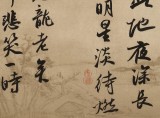 此地夜深長
明星淡待燃
龍老矣
悲笑一時